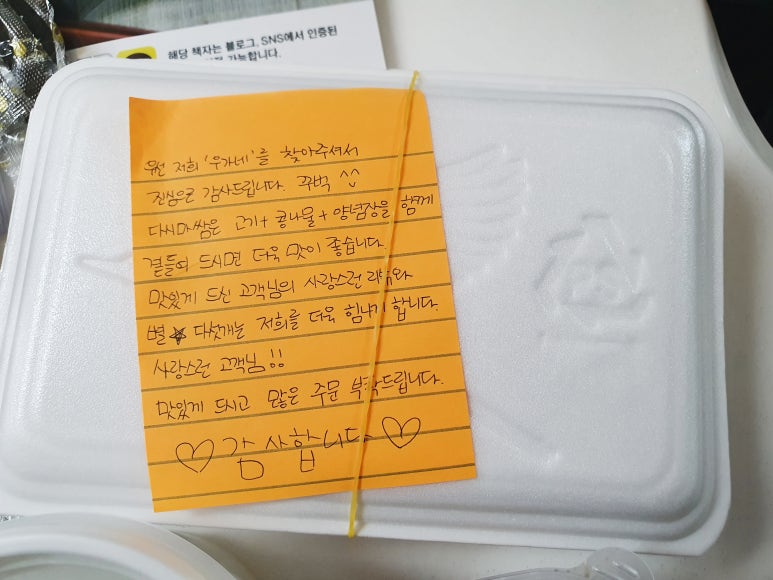 해당 책자는 블로그, SNS에서 인증된
가능합니다.
우선 저희 '우가네'를 찾아주셔서
진심으로 감사드립니다. 꾸벅 ^^
다시마쌈은 고기+콩나물+양념장을 함께
곁들여 드시면 더욱 맛이 좋습니다.
맛있게 드신 고객님의 사랑스런 리뷰와
별★ 다섯개는 저희를 더욱 힘나게 합니다.
사랑스런 고객님!!
맛있게 드시고 많은 주문 부탁드립니다.
♡감사합니다♡